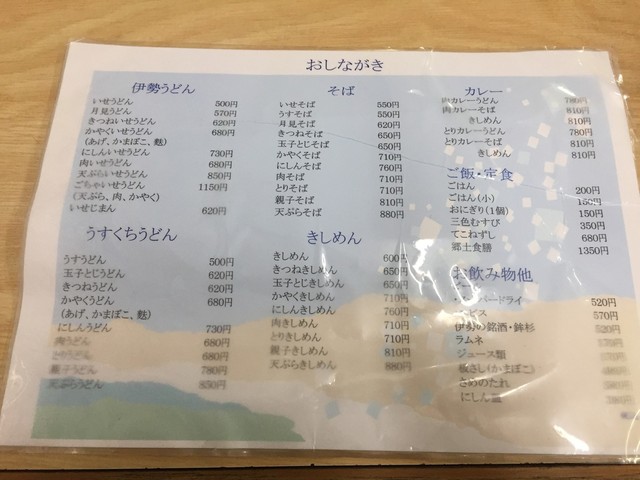 おしながき
伊勢うどん
いせうどん 500円
月見うどん 570円
きつねいせうどん 620円
かやくいせうどん 680円
(あげ、かまぼこ、麩)
にしんいせうどん 730円
肉いせうどん 680円
天ぷらいせうどん 850円
ごちゃいせうどん 1150円
(天ぷら、肉、かやく)
いせじまん 620円
うすくちうどん
うすうどん 500円
玉子とじうどん 620円
きつねうどん 620円
かやくうどん 680円
(あげ、かまぼこ、麩)
にしんうどん 730円
肉うどん 680円
とりうどん 680円
親子うどん 780円
天ぷらうどん 850円
そば
いせそば 550円
うすそば 550円
月見そば 620円
きつねそば 650円
玉子とじそば 650円
かやくそば 710円
にしんそば 760円
肉そば 710円
とりそば 710円
親子そば 810円
天ぷらそば 880円
きしめん
きしめん 600円
きつねきしめん 650円
玉子とじきしめん 650円
かやくきしめん 710円
にしんきしめん 760円
肉きしめん 710円
とりきしめん 710円
親子きしめん 810円
天ぷらきしめん 880円
カレー
肉カレーうどん 780円
肉カレーそば 810円
きしめん 810円
とりカレーうどん 780円
とりカレーそば 810円
きしめん 810円
ご飯・定食
ごはん 200円
ごはん(小) 150円
おにぎり(1個) 150円
三色むすび 350円
てこねずし 680円
郷土食膳 1350円
お飲み物他
ドライ 520円
570円
伊勢の銘酒・鉾杉 520円
ラムネ
ジュース類
板さし(かまぼこ)
さめのたれ
にしん